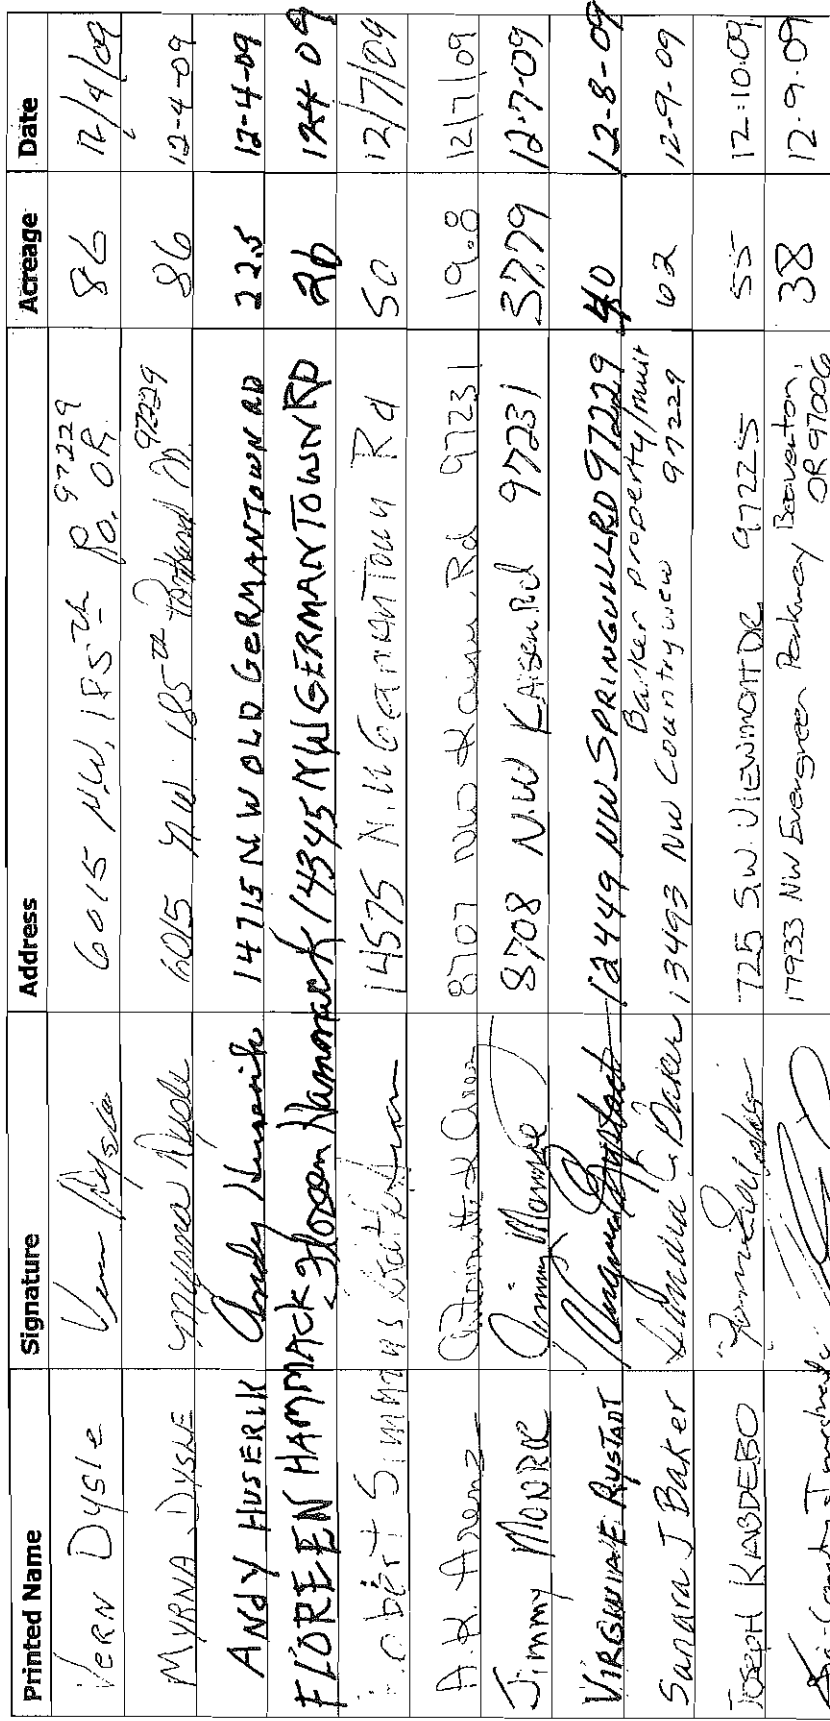 Printed Name Signature Address Acreage Date
Vern Dysle Vern Dysle 6015 N.W. 185th Po. OR. 97229 86 12/4/09
Myrna Dysle Myrna Dysle 6015 NW 185th Portland 97229 86 12-4-09
Andy Huserik Andy Huserik 14715 NW OLD GERMANTOWN RD 22.5 12-4-09
FLOREEN HAMMACK Floreen Hammack 14345 NW GERMANTOWN RD 26 12-4-09
obert Simmons 14575 N.W Germantown Rd 50 12/7/09
A.K. Arenz 8707 NW Kaiser Rd 97231 19.8 12/7/09
Jimmy Monroe Jimmy Monroe 8708 N.W Kaiser Rd 97231 37.79 12-7-09
VIRGINIA E. RUSTADT 12449 NW SPRINGVILLRD 97229 40 12-8-09
Barker property/Mult
Sandra J Baker Sandra J Baker 13493 NW Countryview 97229 62 12-9-09
Joseph Kabdebo 725 S.W. VIEWMONT DR. 97225 55 12-10-09
17933 NW Evergreen Parkway Beaverton, 38 12-9-09
OR 97006